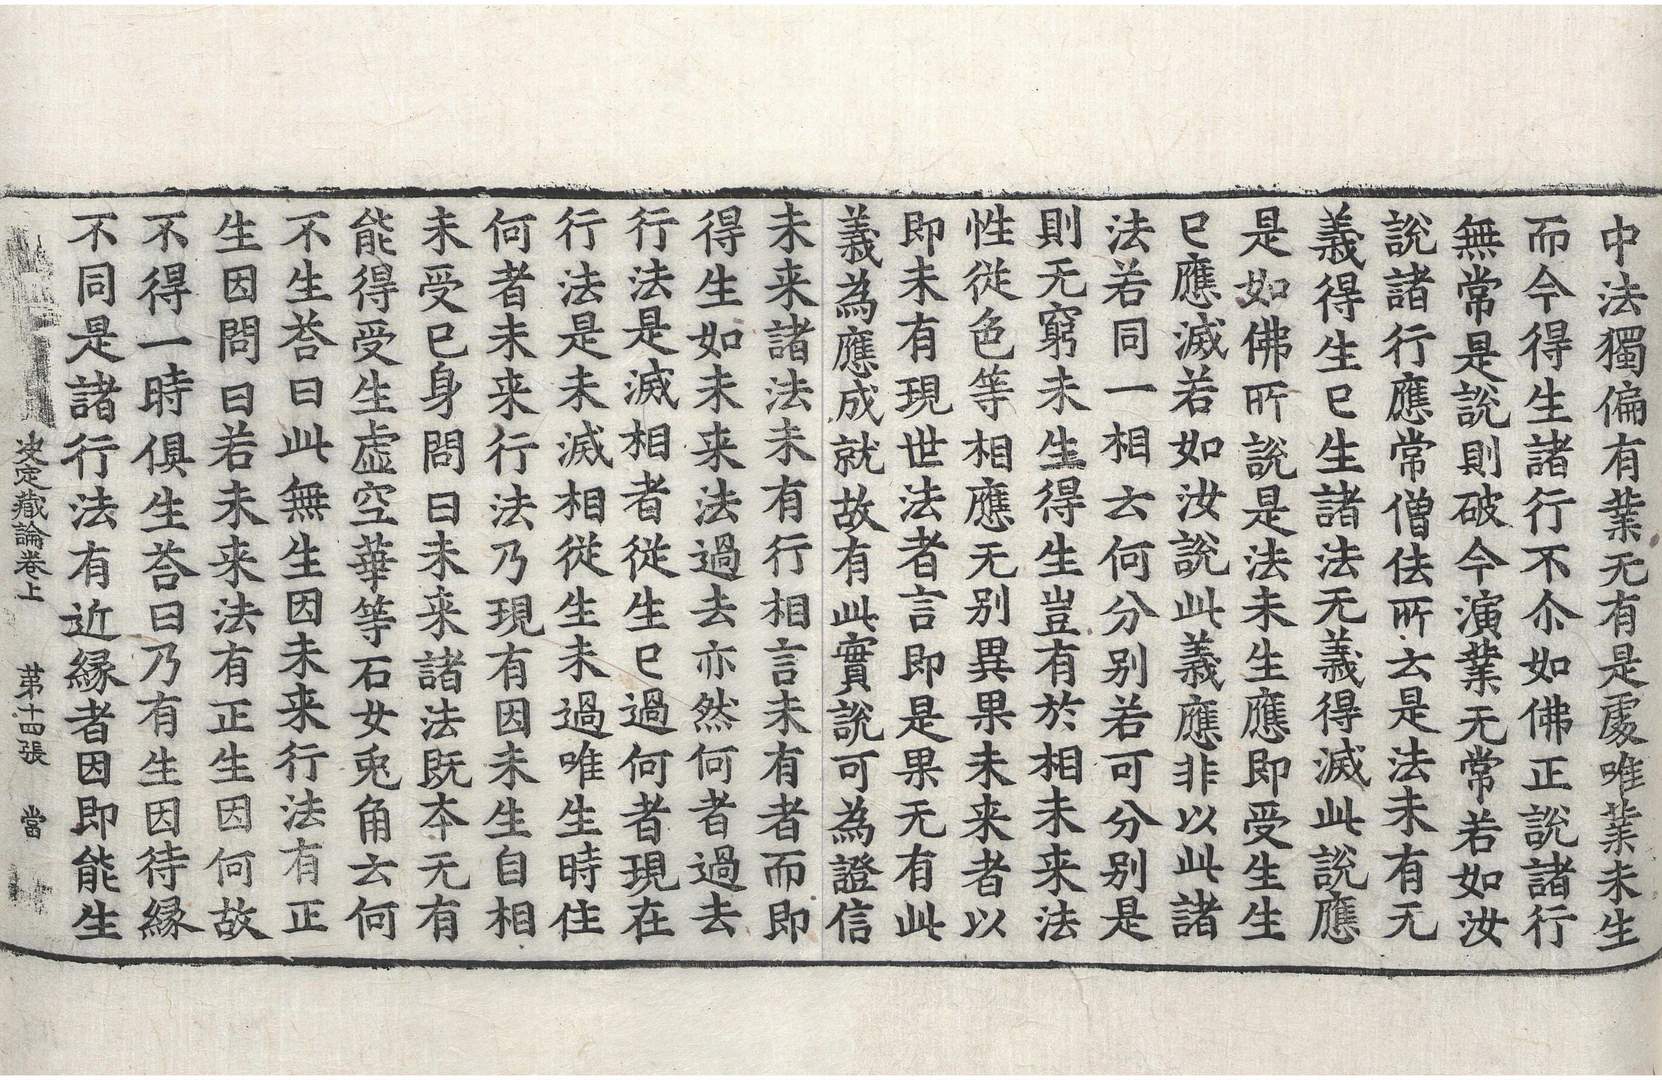 中法獨偏有業无有是處唯業未生
而今得生諸行不尒如佛正說諸行
無常是說則破今演業无常若如汝
說諸行應常僧佉所云是法未有无
義得生已生諸法无義得滅此說應
是如佛所說是法未生應即受生生
已應滅若如汝說此義應非以此諸
法若同一相云何分別若可分別是
則无窮未生得生豈有於相未来法
性從色等相應无別異果未来者以
即未有現世法者言即是果无有此
義為應成就故有此實說可為證信
未来諸法未有行相言未有者而即
得生如未来法過去亦然何者過去
行法是滅相者從生已過何者現在
行法是未滅相從生未過唯生時住
何者未来行法乃現有因未生自相
未受已身問曰未来諸法既夲无有
能得受生虛空華等石女兎角云何
不生荅曰此無生因未来行法有正
生因問曰若未来法有正生因何故
不得一時俱生荅曰乃有生因待緣
不同是諸行法有近緣者因即能生
决定藏論卷上　第十四張　當